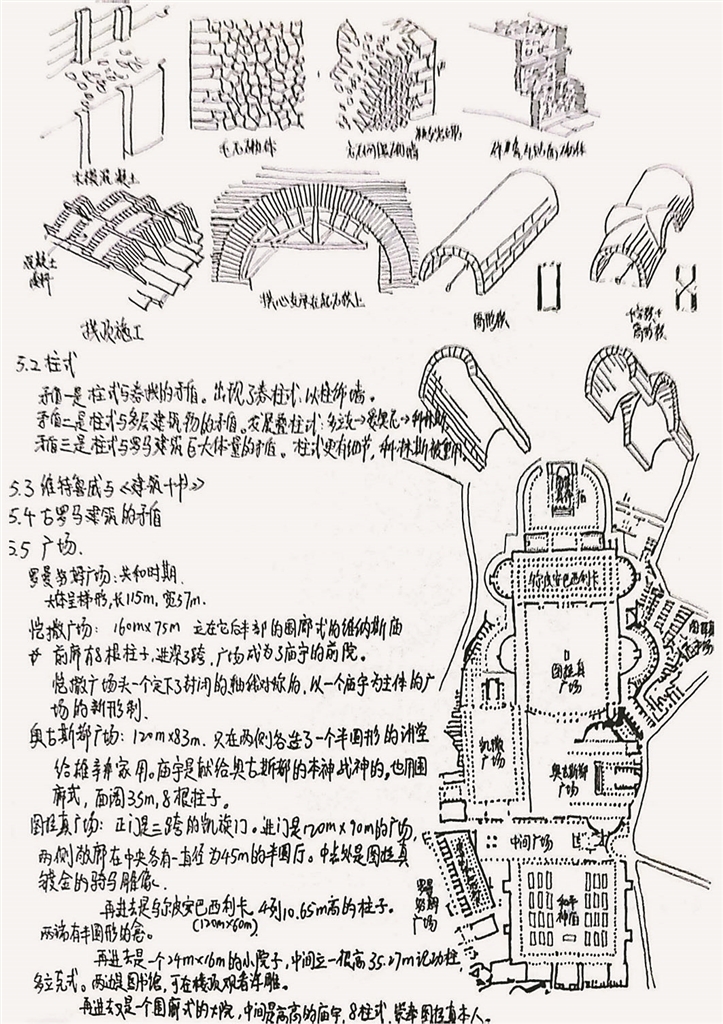 木模混凝土
毛石砌体
拱顶施工
筒形拱
十字拱+
筒形拱
5.2 柱式
矛盾一是柱式与券拱的矛盾。出现了券柱式,以柱饰墙。
矛盾二是柱式与多层建筑物的矛盾。发展叠柱式:多立克→爱奥尼→科林斯
矛盾三是柱式与罗马建筑巨大体量的矛盾。柱式更有细节,科林斯被重用
5.3 维特鲁威与《建筑十书》
5.4 古罗马建筑的矛盾
5.5 广场.
罗曼努姆广场:共和时期.
大体呈梯形,长115m,宽57m.
恺撒广场: 160m×75m 立在它后半部的围廊式的维纳斯庙
前廊有8根柱子,进深3跨,广场成为了庙宇的前院。
恺撒广场头一个定下了封闭的轴线对称的,以一个庙宇为主体的广
场的新形制.
奥古斯都广场:120m×83m. 只在两侧各造了一个半圆形的讲堂
给雄辩家用。庙宇是献给奥古斯都的本神战神的,也用围
廊式,面阔35m,8根柱子。
图拉真广场: 正门是三跨的凯旋门。进门是120m×90m的广场,
两侧敞廊在中央各有一直径为45m的半圆厅。中央处是图拉真
镀金的骑马雕像.
再进去是乌尔皮安巴西利卡. 4列10.65m高的柱子。
(120m×60m)
两端有半圆形的龛。
再进去是一个24m×16m的小院子,中间立一根高35.27m记功柱,
多立克式。两边是图书馆,可在楼顶观看浮雕。
再进去又是一个围廊式的大院,中间是高高的庙宇,8柱式,崇奉图拉真本人。
乌尔皮安巴西利卡
图拉真
广场
凯撒
广场
奥古斯都
广场
中间广场
罗曼
努姆
广场
和平
神庙